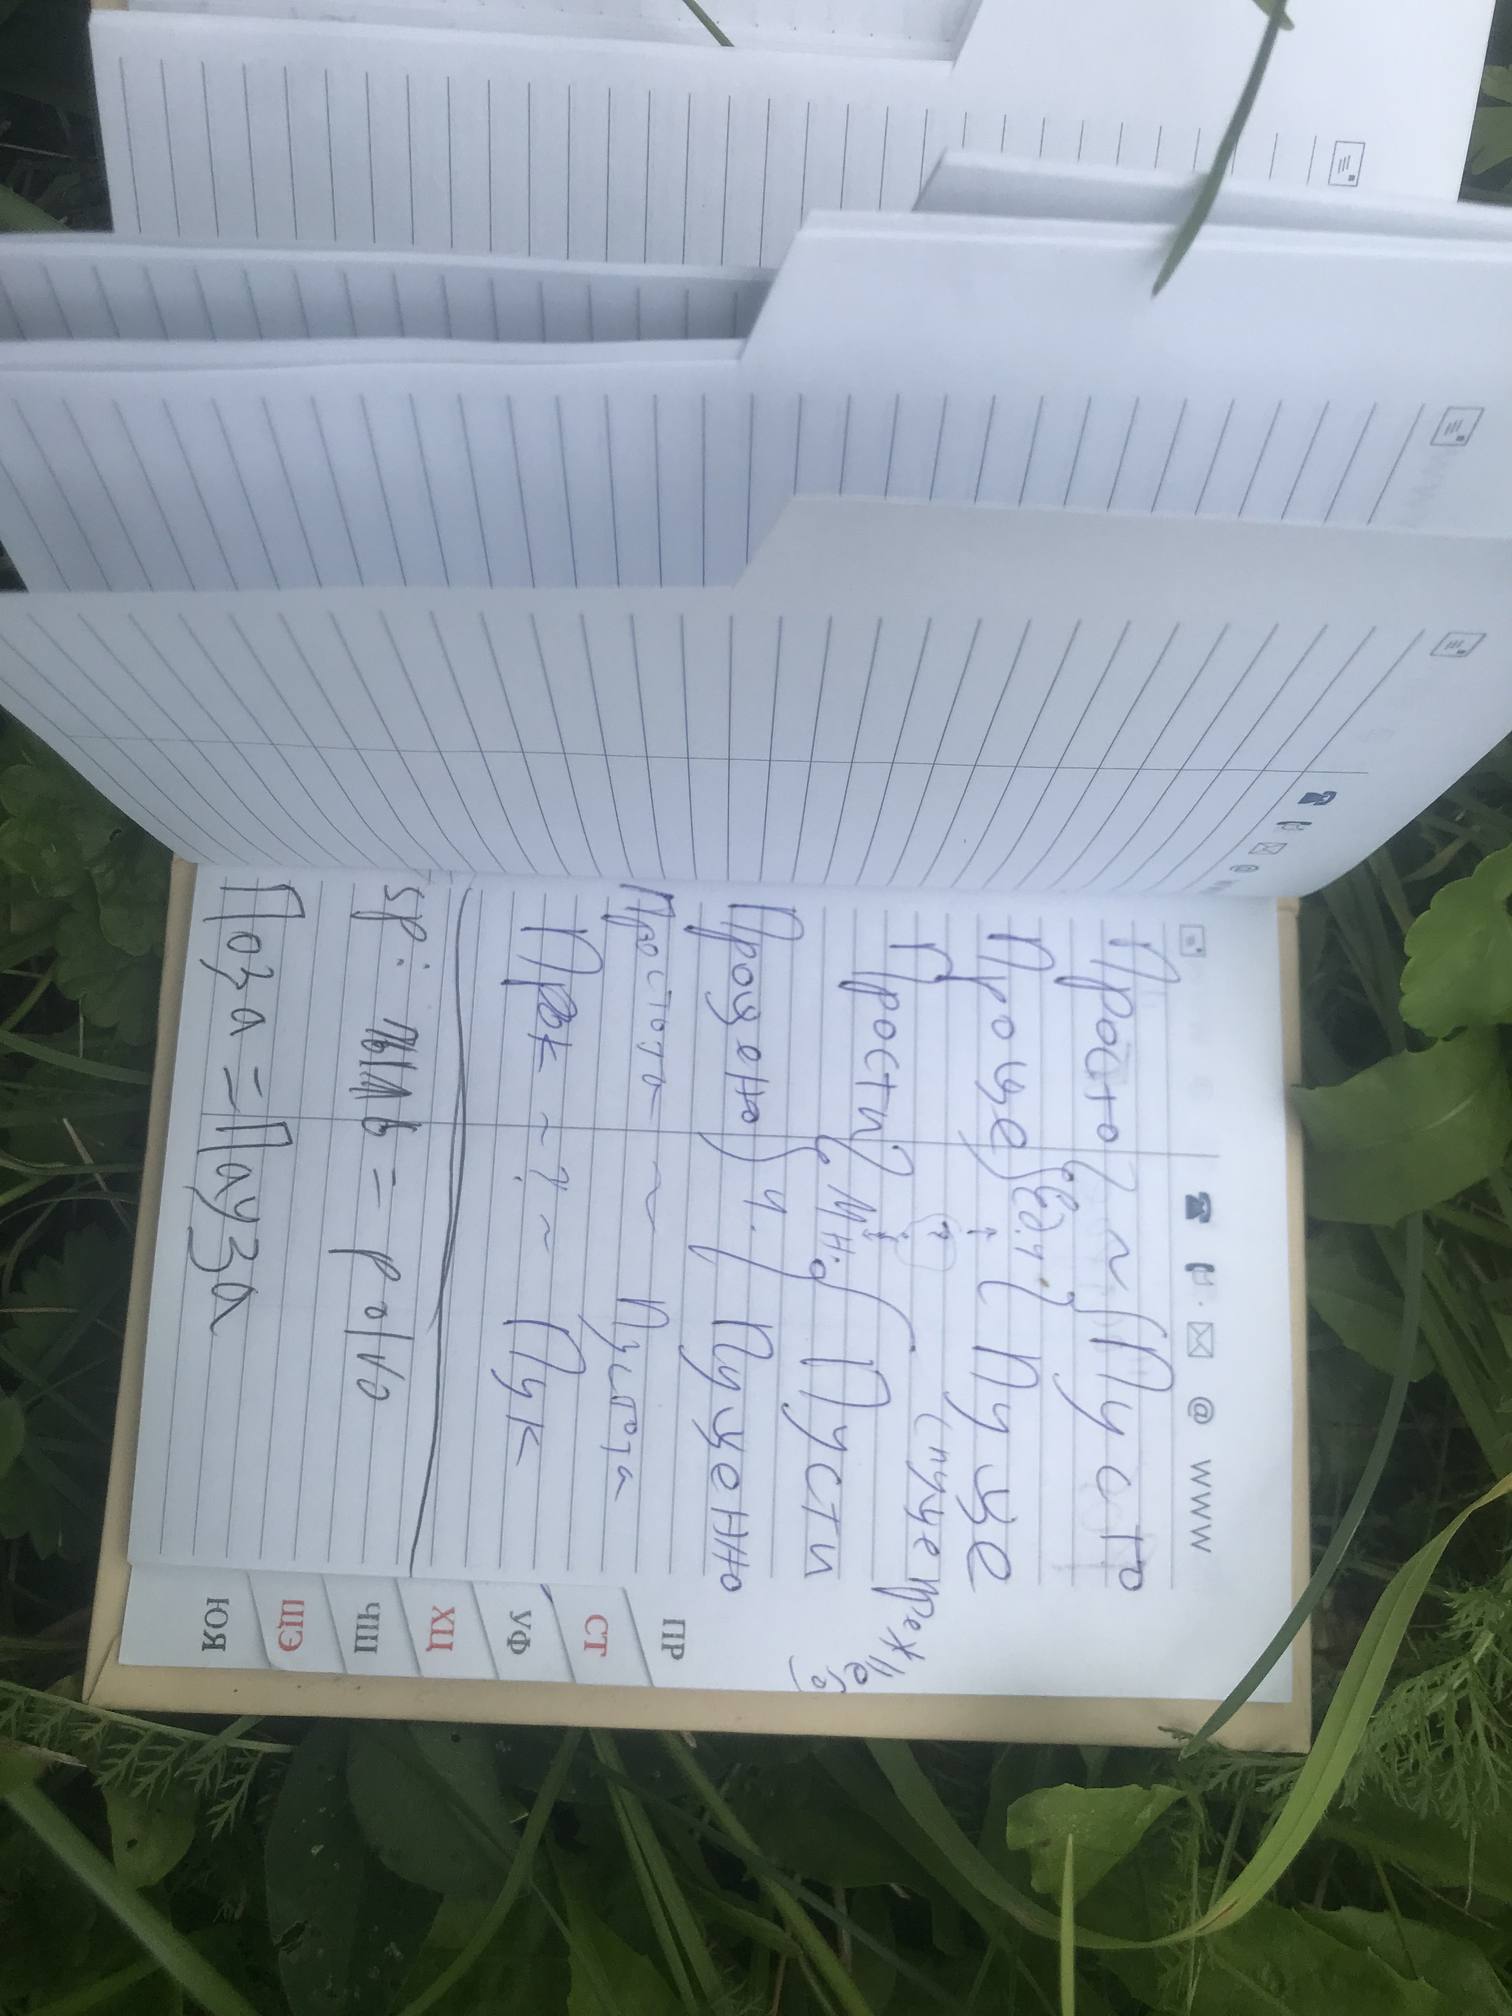 WWW
Просто ~ Пусто
Проще Ед.ч. Пуще
(пуще прежнего)
Прости Мн. Пусти
Прощено ч. Пущенно
Простота ~ Пустота
Прок ~ ? ~ Пук
sp: = polvo
Поза = Пауза
ПР
СТ
УФ
ХЦ
ЧШ
ЩЭ
ЮЯ